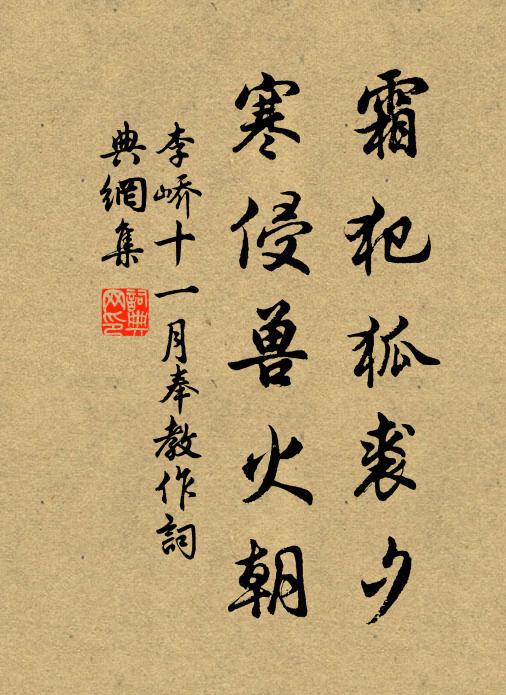 霜犯狐裘夕
寒侵兽火朝
李峤十一月奉教作詞
典網集
詞典網印